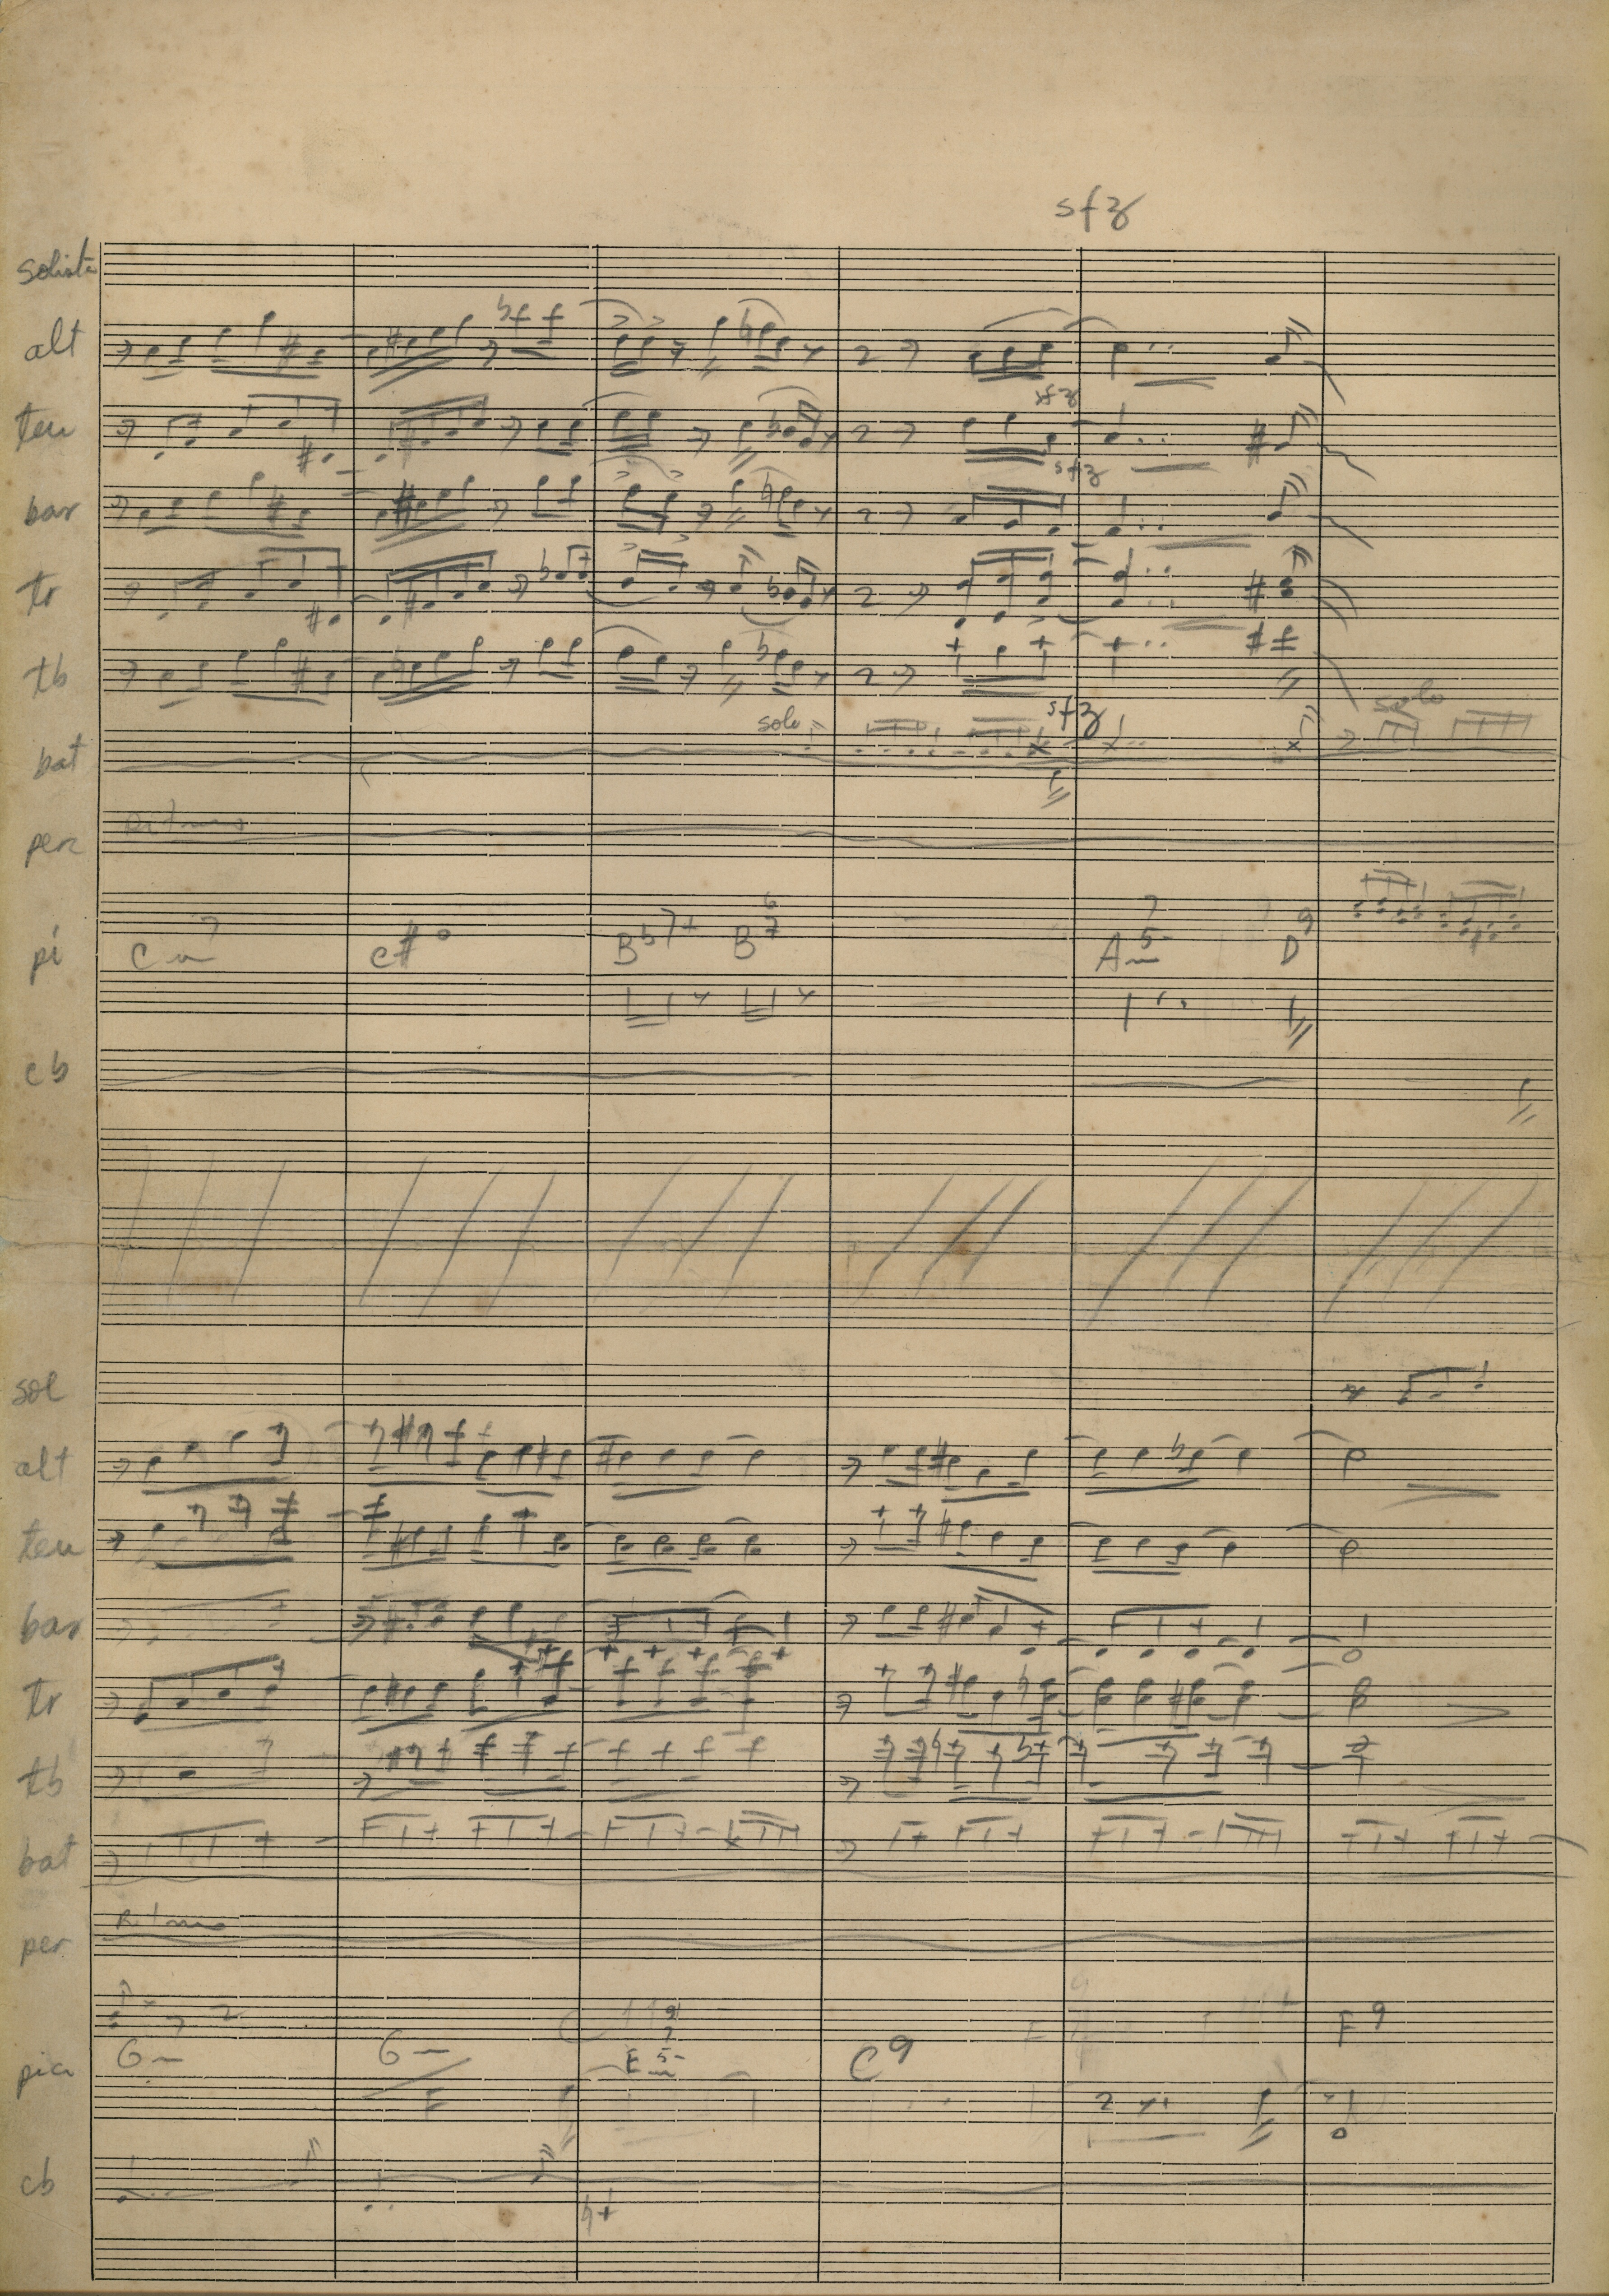 sfz
solista
alt
sfz
ten
sfz
bar
tr
tb
solo sfz solo
bat
Ritmo
perc
pi Cm7 C#° Bb7+ B7 6 Am7 5- D9
cb
sol
alt
ten
bar
tr
tb
bat
Ritmo
per
Gm Gm/F Em 9 7 5- C9 F9
cb